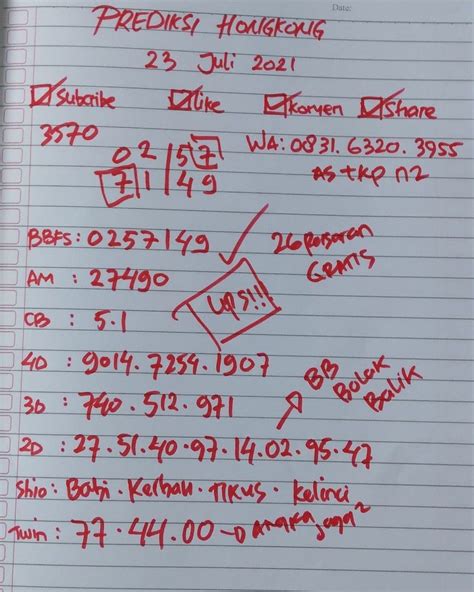 Date:
PREDIKSI HONGKONG
23 Juli 2021
Subcribe Like Komen Share
3570
WA: 0831.6320.3955
02|57
71|49
AS tkp n2
BBFS: 0257149
26 GRATIS
AM : 27490
UPS!!!
CB : 5.1
4D : 9014.7254.1907
BB
Bolak
Balik
3D : 740.512.971
2D : 27.51.40.97.14.02.95.47
Shio: Babi. Kerbau. Tikus. Kelinci
Twin: 77.44.00 Angka jaga²